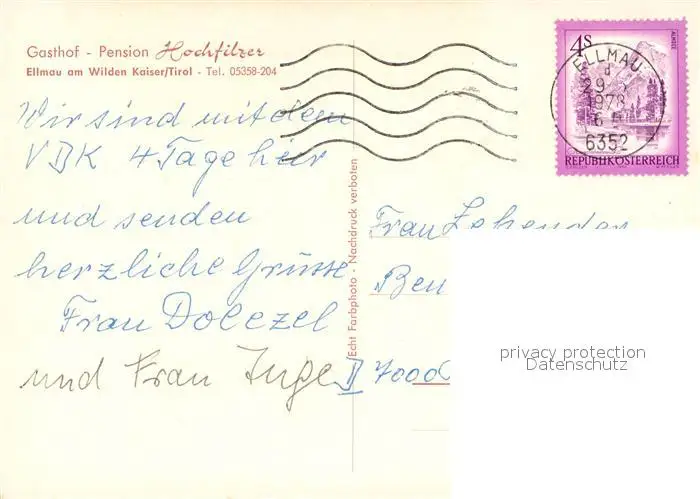 Gasthof - Pension Hochfilzer
Ellmau am Wilden Kaiser/Tirol - Tel. 05358-204
Wir sind mit dem
VBK 4 Tage hier
und senden
herzliche Grüsse
Frau Dolezel
und Frau Inge
Echt Farbphoto - Nachdruck verboten
4s
ALMSEE
REPUBLIK ÖSTERREICH
ELLMAU
1978
6352
Frau
Ben
7000
privacy protection
Datenschutz